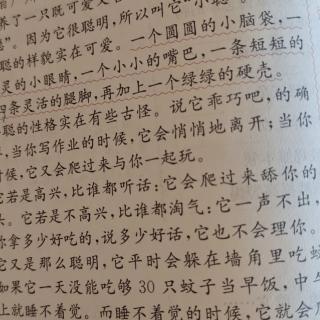 养了一只既可爱又
”。因为它很聪明，所以叫它“小聪
聪的样貌实在可爱。一个圆圆的小脑袋，一
灵的小眼睛，一个小小的嘴巴，一条短短的
四条灵活的腿脚，再加上一个绿绿的硬壳。
聪的性格实在有些古怪。说它乖巧吧，的确
，当你写作业的时候，它会悄悄地离开；当你
时候，它又会爬过来与你一起玩。
它若是高兴，比谁都听话：它会爬过来舔你的
。它若是不高兴，比谁都淘气：它一声不出，
你拿多少好吃的，说多少好话，它也不会理你。
它又是那么聪明，它平时会躲在墙角里吃蚊
如果它一天没能吃够30只蚊子当早饭，中午
上就睡不着觉。而睡不着觉的时候，它就会